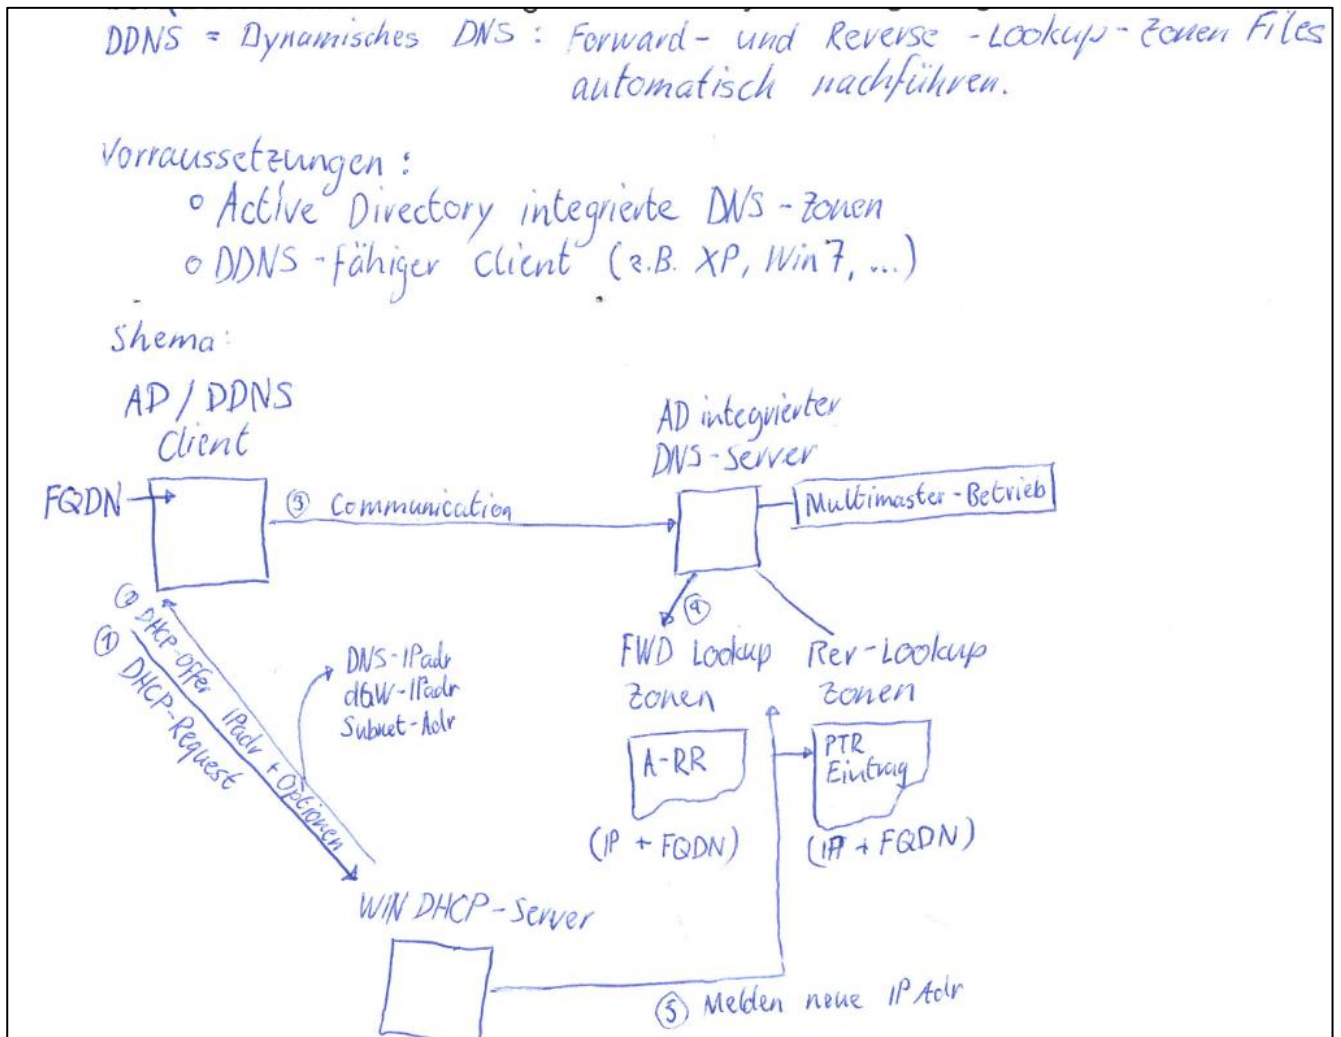 DDNS = Dynamisches DNS : Forward- und Reverse -Lookup- Zonen Files
automatisch nachführen.
Vorraussetzungen :
o Active Directory integrierte DNS - Zonen
o DDNS - fähiger Client (z.B. XP, Win 7, ...)
Shema:
AD / DDNS
Client
AD integrierter
DNS - Server
FQDN
③ Communication
Multimaster - Betrieb
② DHCP-Offer IPadr + Optionen
① DHCP-Request
DNS-IPadr
dGW-IPadr
Subnet-Adr
④
FWD Lookup
Zonen
Rev-Lookup
Zonen
A-RR
PTR
Eintrag
(IP + FQDN)
(IP + FQDN)
WIN DHCP-Server
⑤ Melden neue IP Adr